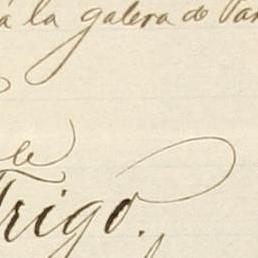 á la galera de
le
Trigo.